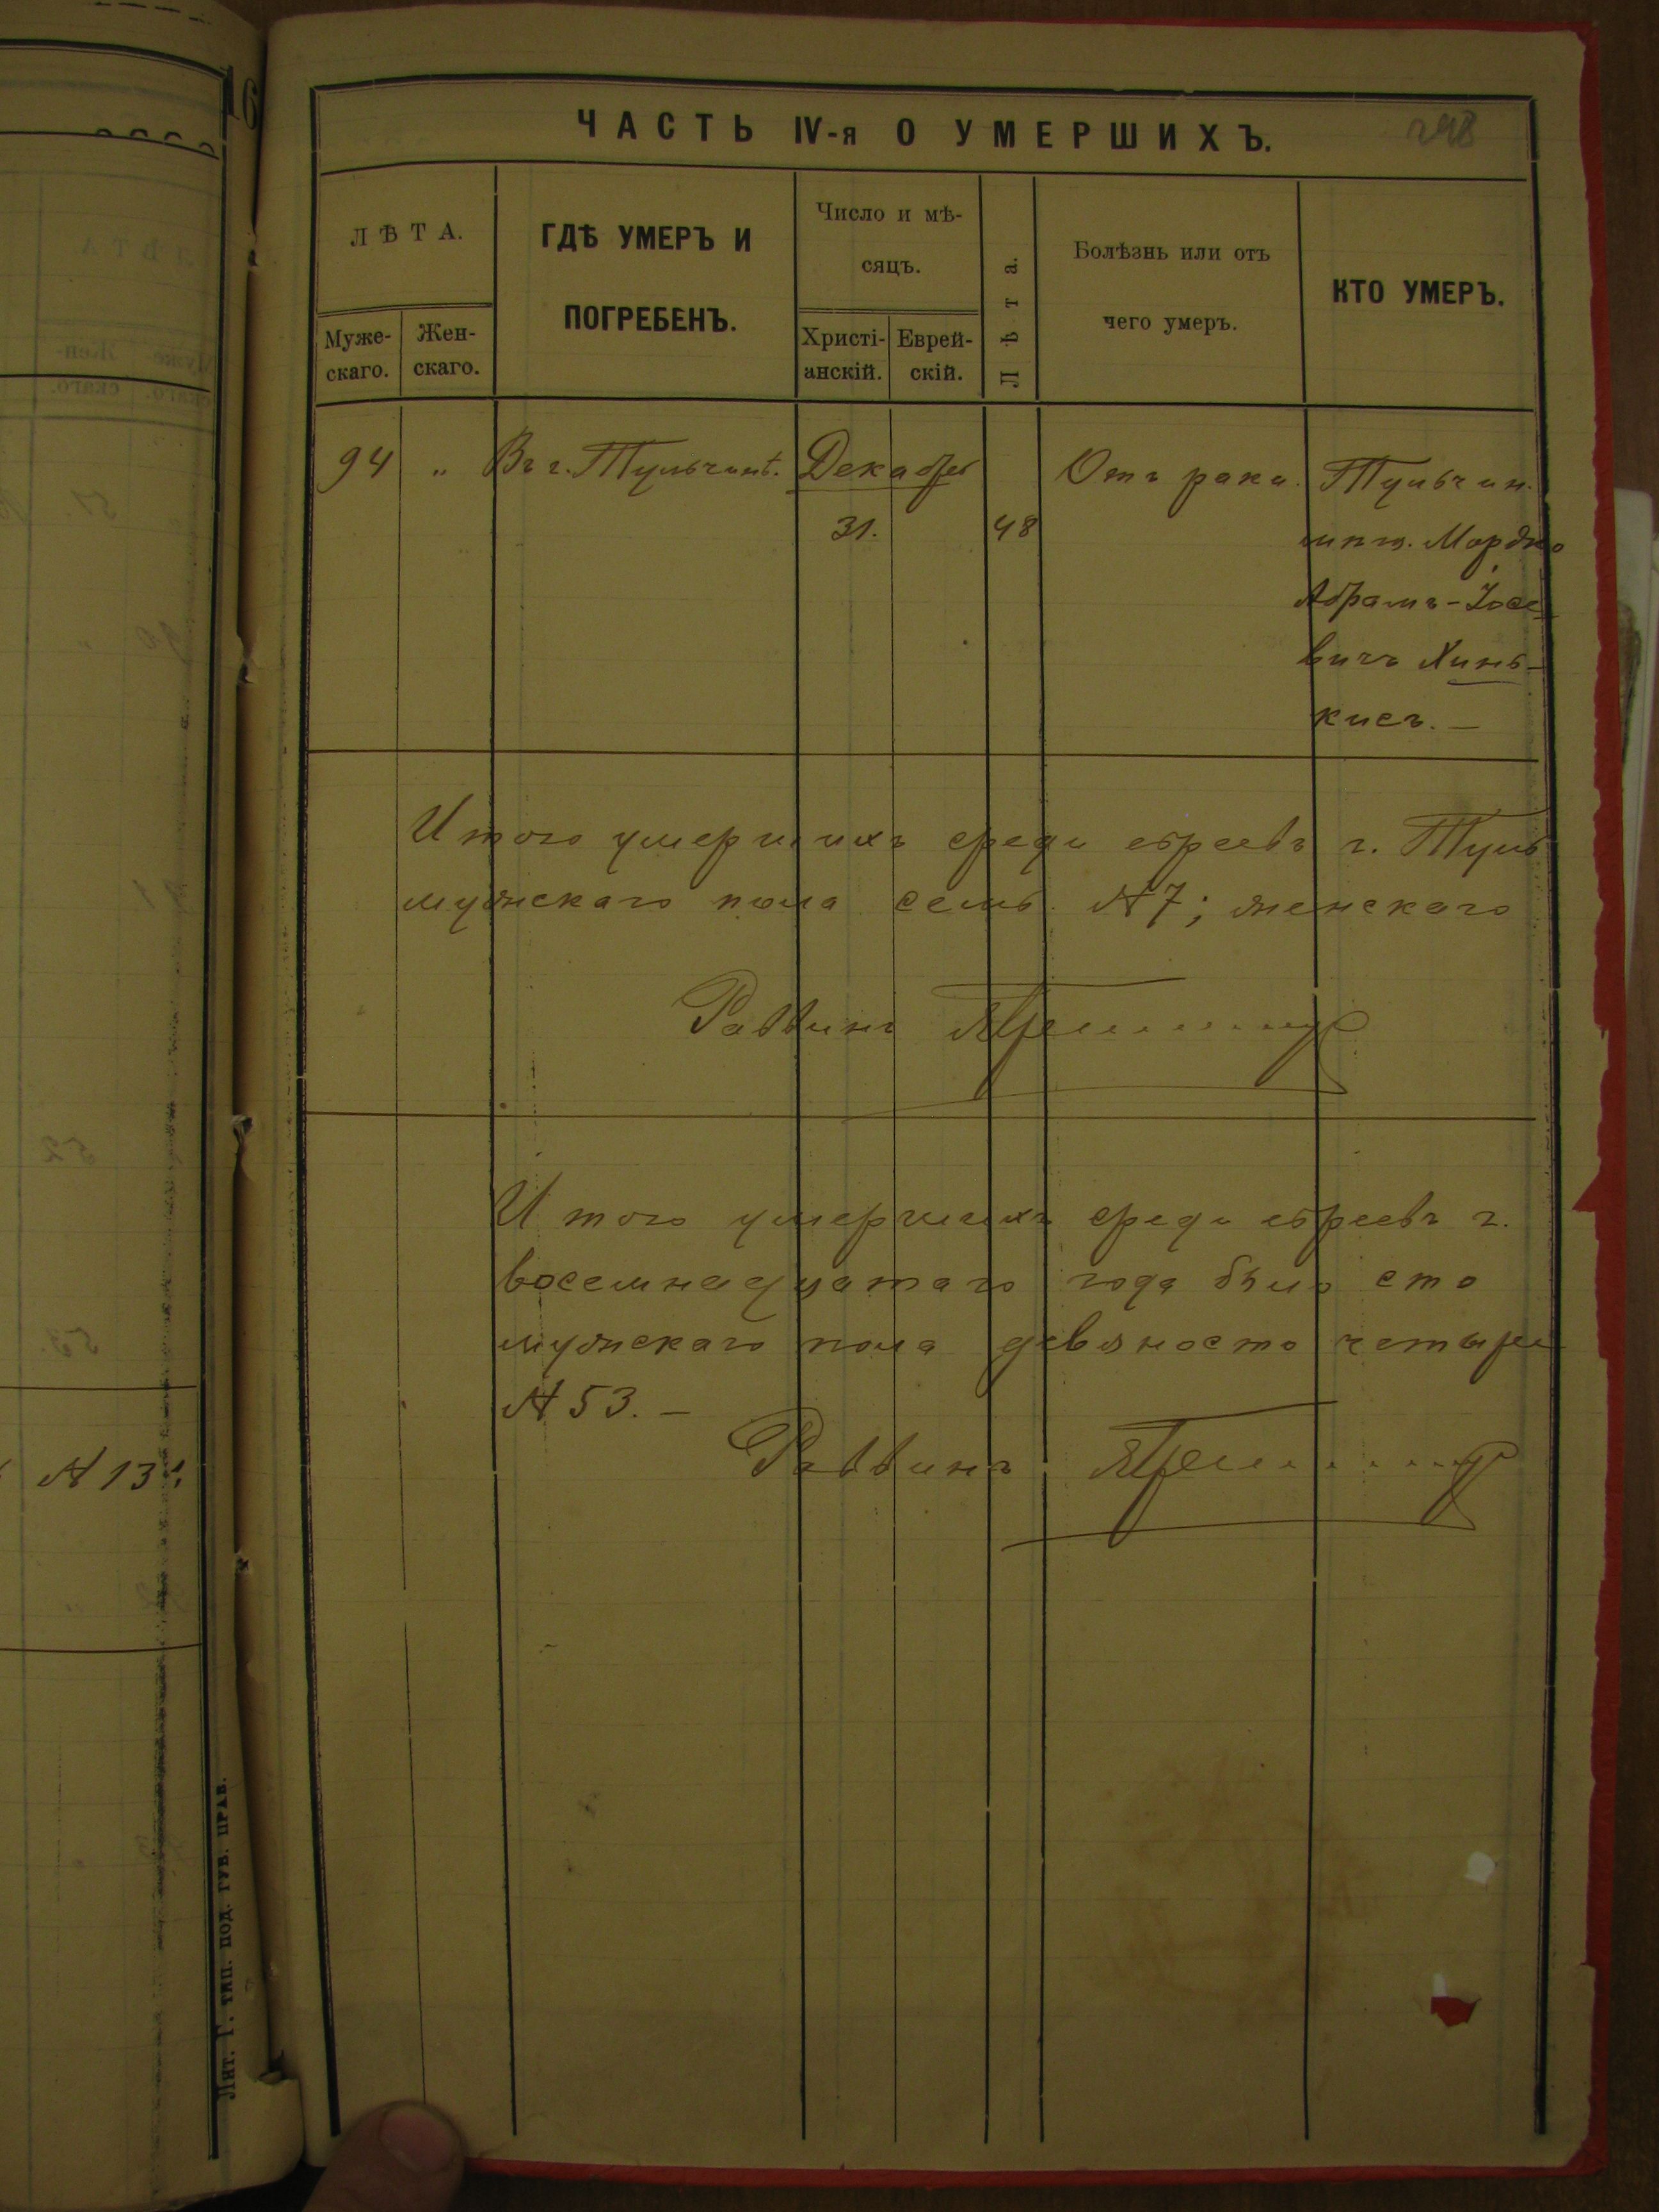 16
ЧАСТЬ IV-я О УМЕРШИХЪ.
298
ЛѢТА.
Муже-
скаго.
Жен-
скаго.
ГДѢ УМЕРЪ И
ПОГРЕБЕНЪ.
Число и мѣ-
сяцъ.
Христі-
анскій.
Еврей-
скій.
Лѣта.
Болѣзнь или отъ
чего умеръ.
КТО УМЕРЪ.
94 „ Въ г. Тульчинѣ. Декабрь Отъ рака. Тульчин.
31. 48 мѣщ. Мордко
Абрамъ-Іосе
вичъ Хинь-
кисъ. —
Итого умершихъ среди евреевъ г. Туль
мужскаго пола семь № 7; женскаго
Раввинъ
Итого умершихъ среди евреевъ г.
восемнадцатаго года было сто
мужскаго пола девяносто четыре
№ 53. —
Раввинъ
№ 13;
Лит. Г. тип. под. губ. прав.